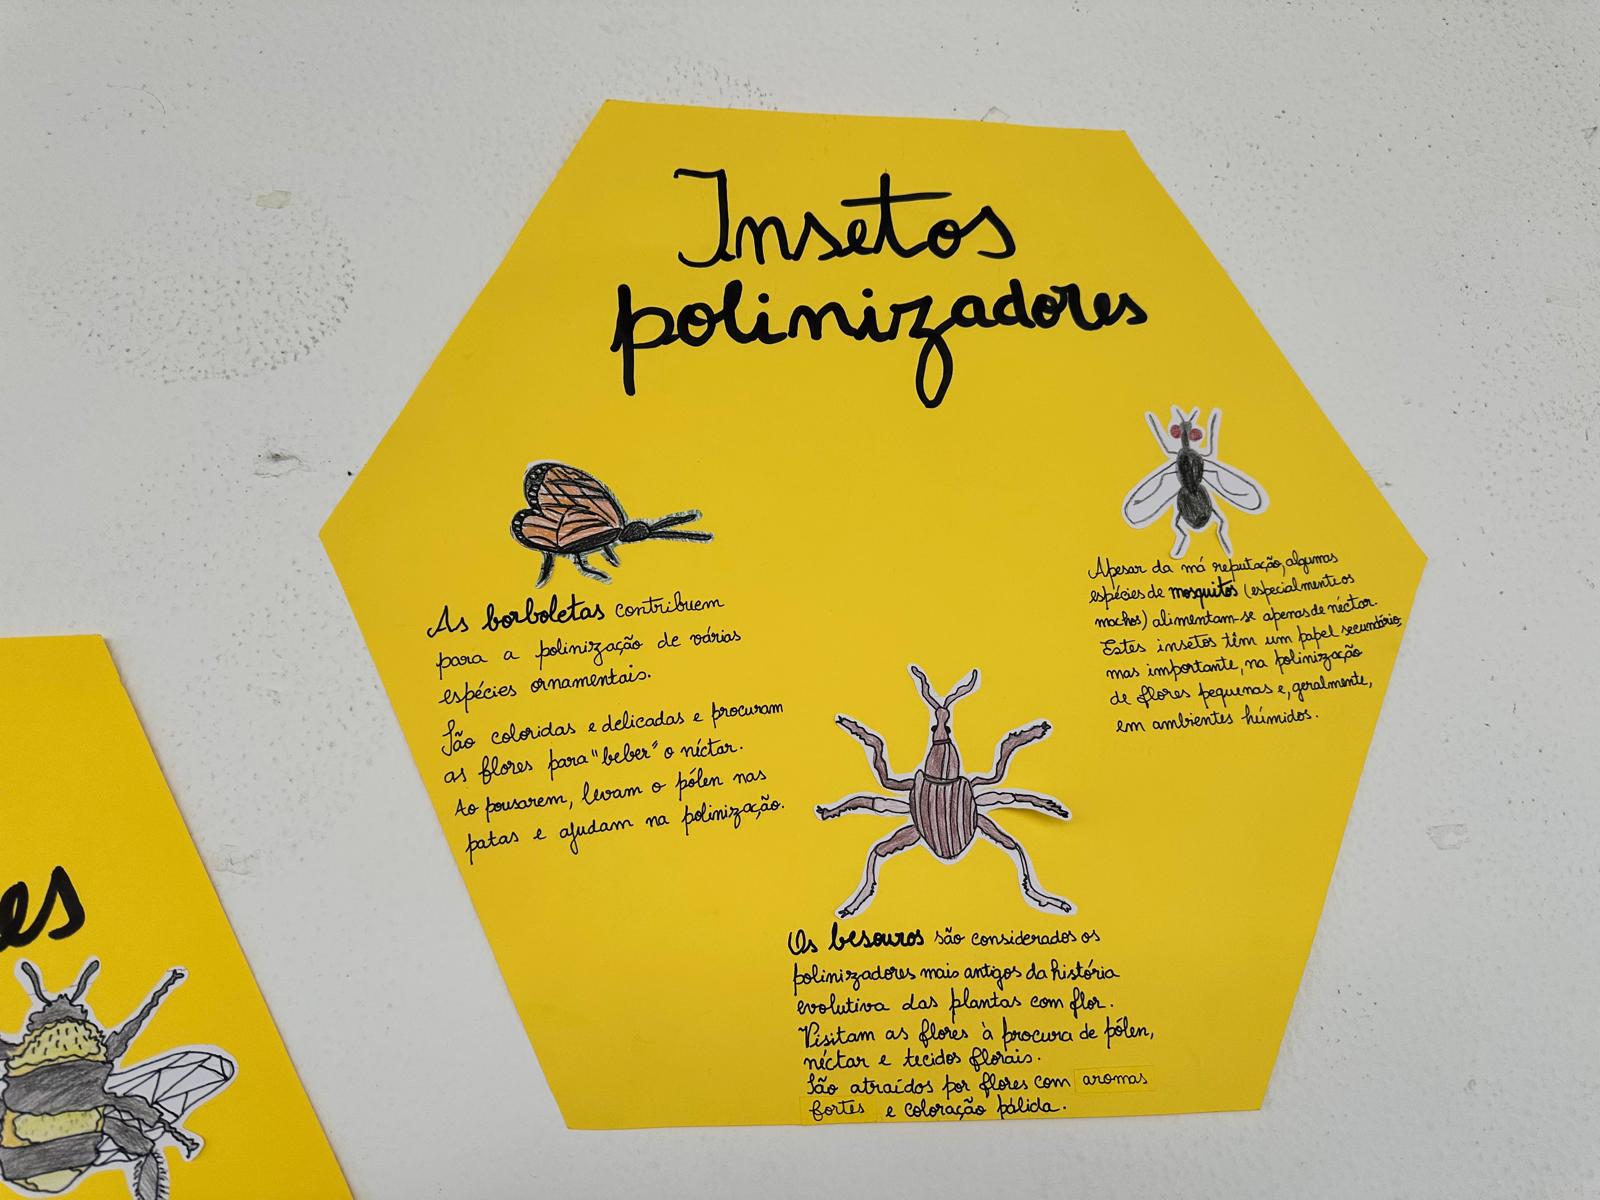 Insetos
polinizadores
As borboletas contribuem
para a polinização de várias
espécies ornamentais.
São coloridas e delicadas e procuram
as flores para "beber" o néctar.
Ao pousarem, levam o pólen nas
patas e ajudam na polinização.
Apesar da má reputação, algumas
espécies de mosquitos (especialmente os
machos) alimentam-se apenas de néctar.
Estes insetos têm um papel secundário,
mas importante, na polinização
de flores pequenas e, geralmente,
em ambientes húmidos.
Os besouros são considerados os
polinizadores mais antigos da história
evolutiva das plantas com flor.
Visitam as flores à procura de pólen,
néctar e tecidos florais.
São atraídos por flores com aromas
fortes e coloração pálida.
es